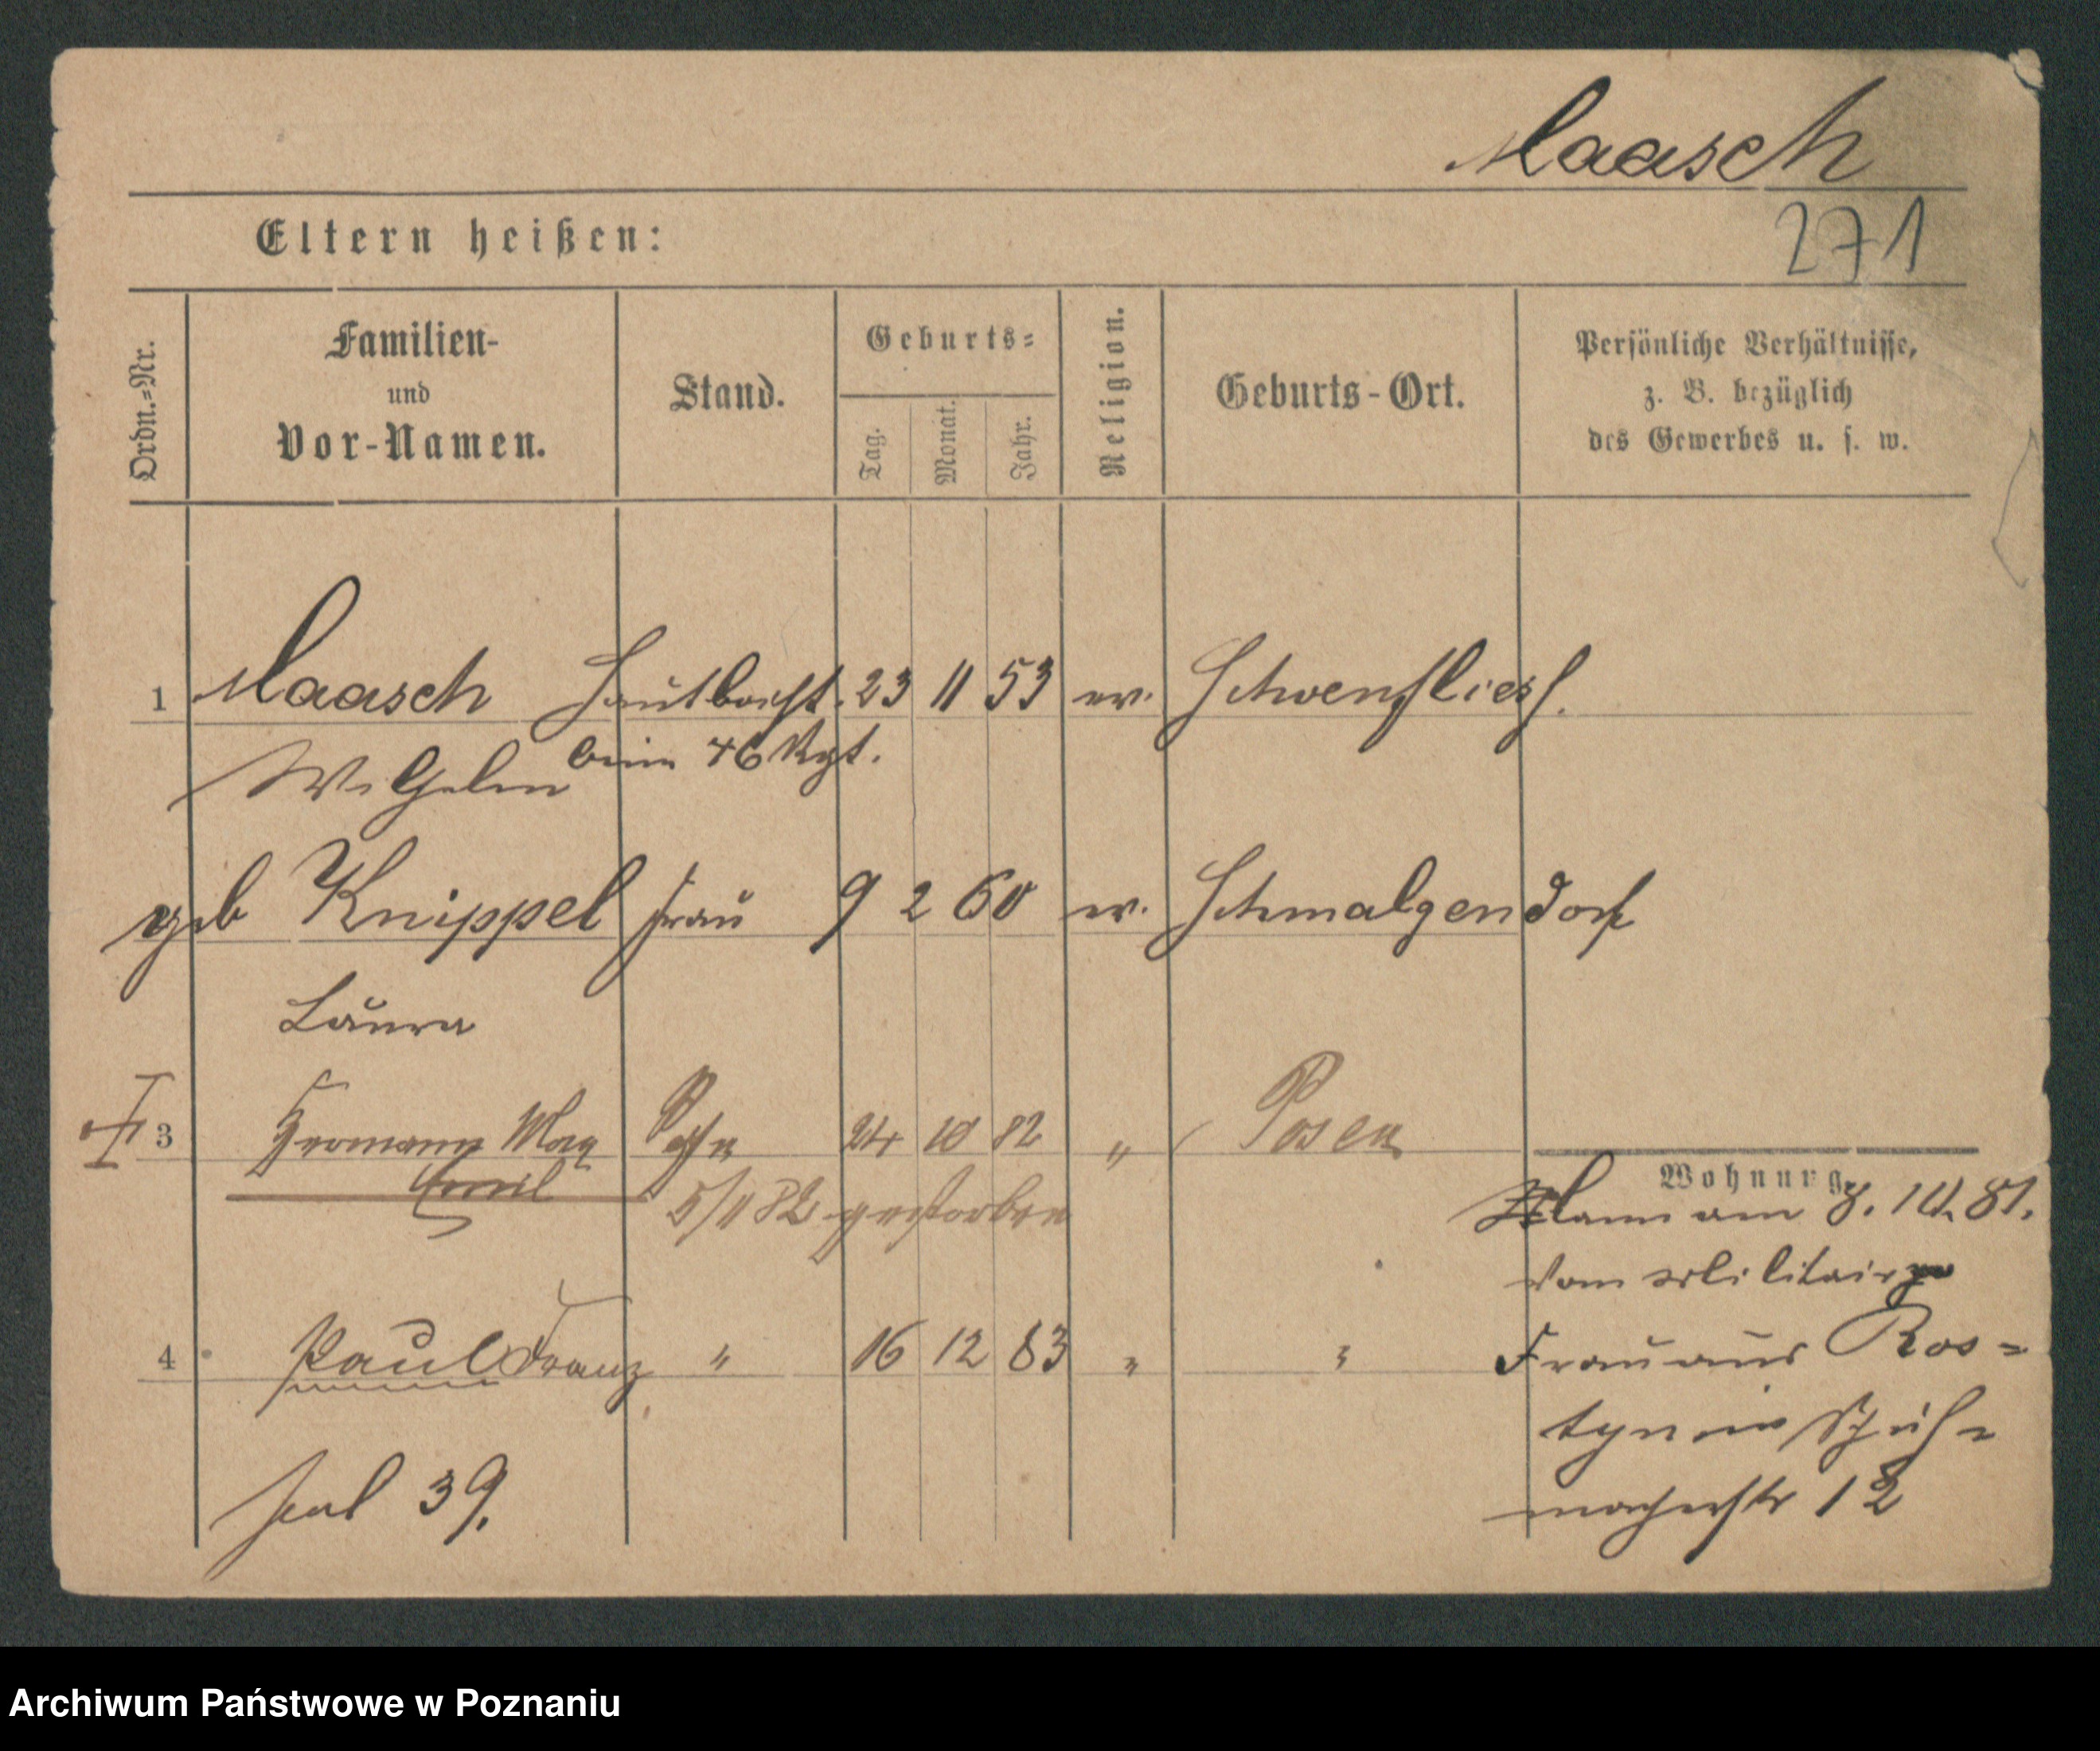 Maasch
271
Eltern heißen:
Ordn.-Nr.
Familien-
und
Vor-Namen.
Stand.
Geburts-
Tag.
Monat.
Jahr.
Religion.
Geburts-Ort.
Persönliche Verhältnisse,
z. B. bezüglich
des Gewerbes u. s. w.
1 Maasch Hautboist. 23 11 53 ev. Schoenfliess.
Wilhelm beim 46 Rgt.
geb Knippel Frau 9 2 60 ev. Schmalgendorf
Laura
3 Hermann Max Sohn 24 10 82 " Posen
Emil
5/11 82 gestorben
Wohnung.
Mann am 8. 10. 81.
vom Militair
4 Paul Franz " 16 12 83 " "
Frau aus Ros-
tyn in Schuh-
macherstr 12
39.
Archiwum Państwowe w Poznaniu